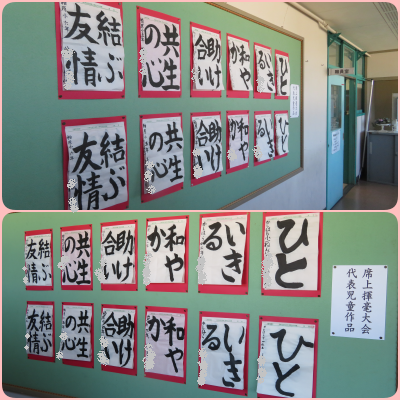 ひと
いき
る
和や
か
助け
合い
共生
の心
結ぶ
友情
ひと
いき
る
和や
か
助け
合い
共生
の心
結ぶ
友情
席上揮毫大会
代表児童作品
ひと
いき
る
和や
か
助け
合い
共生
の心
結ぶ
友情
ひと
いき
る
和や
か
助け
合い
共生
の心
結ぶ
友情